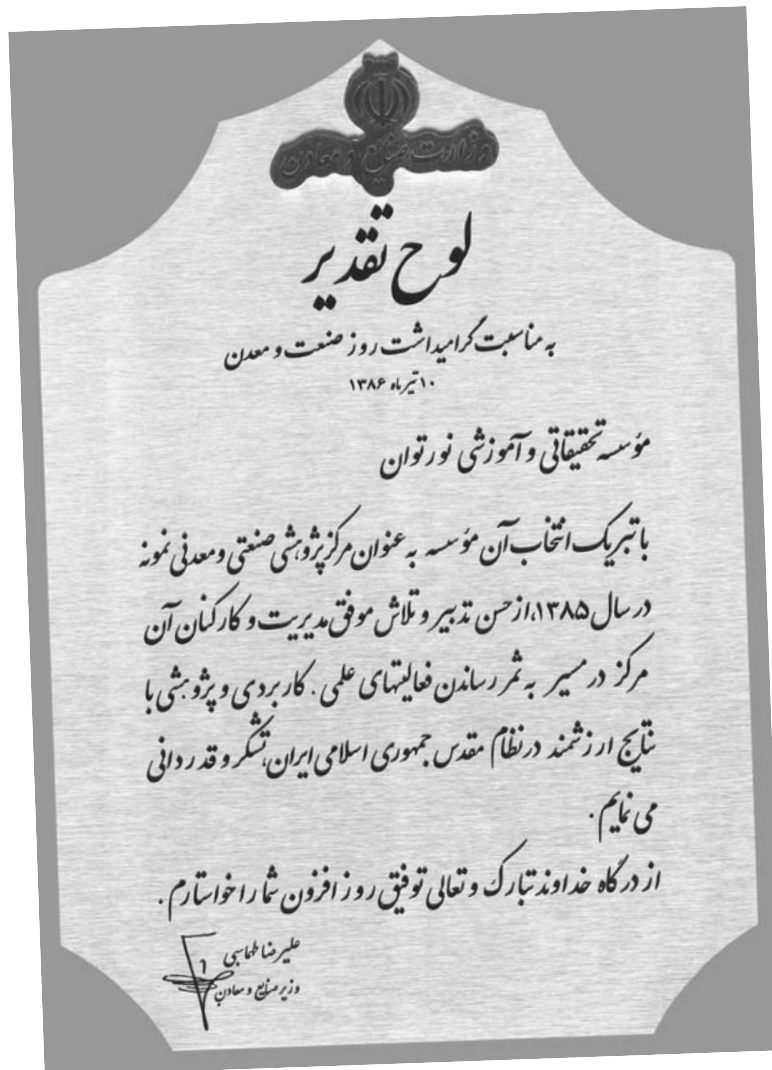 وزارت صنایع و معادن
لوح تقدیر
به مناسبت گرامیداشت روز صنعت و معدن
۱۰ تیر ماه ۱۳۸۶
مؤسسه تحقیقاتی و آموزشی نورتوان
با تبریک انتخاب آن مؤسسه به عنوان مرکز پژوهشی صنعتی و معدنی نمونه
در سال ۱۳۸۵، از حسن تدبیر و تلاش موفق مدیریت و کارکنان آن
مرکز در مسیر به ثمر رساندن فعالیتهای علمی . کاربردی و پژوهشی با
نتایج ارزشمند در نظام مقدس جمهوری اسلامی ایران، تشکر و قدردانی
می نمایم .
از درگاه خداوند تبارک و تعالی توفیق روز افزون شما را خواستارم .
علیرضا طهماسبی
وزیر صنایع و معادن